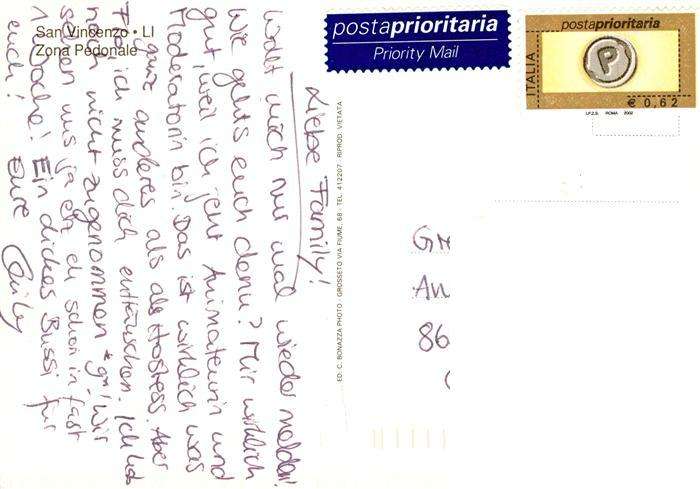 San Vincenzo • LI
Zona Pedonale
Liebe Family!
Wollt mich nur mal wieder melden!
Wie gehts euch denn? Mir wirklich
gut, weil ich jetzt Animateurin und
Moderatorin bin. Das ist wirklich was
ganz anderes als als Hostess. Aber
ich muss dich enttäuschen. Ich hab
nicht zugenommen *g*! Wir
sehen uns ja eh schon in fast
1 Woche! Ein dickes Bussi für
euch! Eure
ED. C. BONAZZA PHOTO - GROSSETO VIA FIUME, 68 - TEL. 412207 - RIPROD. VIETATA
postaprioritaria
Priority Mail
postaprioritaria
ITALIA
P
€ 0,62
I.P.Z.S. ROMA 2002
An
86